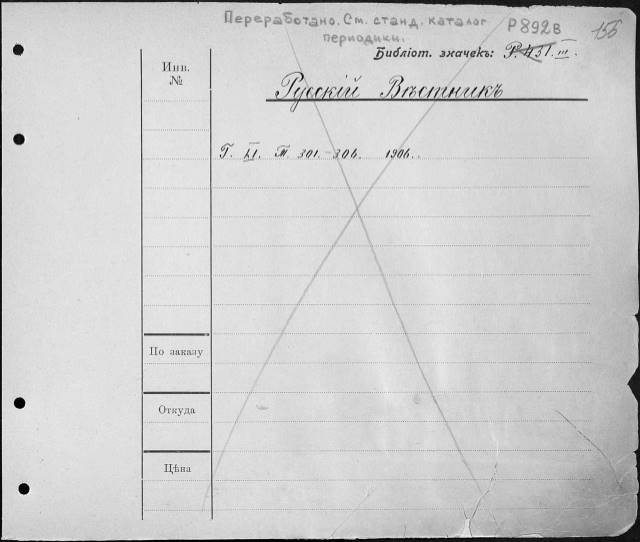 Переработано. См. станд. каталог
периодики.
Р892в
155
Библіот. значекъ: Р.451.III.
Инв.
№
Русскій Вѣстникъ
Г. LI. Т. 301-306. 1906.
По заказу
Откуда
Цѣна